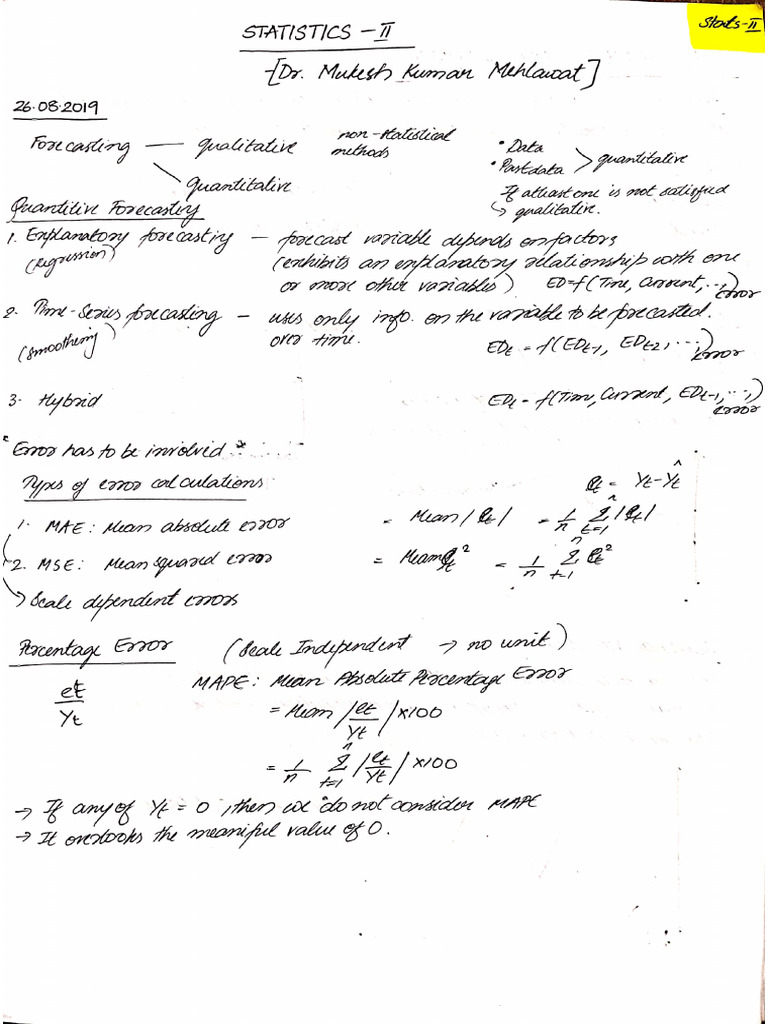 Stats-II
STATISTICS - II
-[Dr. Mukesh Kumar Mehlawat]
26.08.2019
Forecasting — qualitative non-statistical methods
quantitative
• Data
• Past data > quantitative
If atleast one is not satisfied
↳ qualitative.
Quantitive Forecasting
1. Explanatory forecasting — forecast variable depends on factors
(regression) (exhibits an explanatory relationship with one
or more other variables) ED=f(Time, Current,..,error)
2. Time-Series forecasting — uses only info. on the variable to be forecasted.
(smoothening) over time. EDt = f(EDt-1, EDt-2, ..., error)
3. Hybrid EDt = f(Time, Current, EDt-1, ..., error)
* Error has to be involved *
Types of error calculations et = Yt - Ŷt
1. MAE: Mean absolute error = Mean |et| = 1/n Σ t=1 n |et|
2. MSE: Mean squared error = Mean et² = 1/n Σ t=1 n et²
→ Scale dependent errors
Percentage Error (Scale Independent → no unit)
et/Yt
MAPE: Mean Absolute Percentage Error
= Mean |et/Yt| ×100
= 1/n Σ t=1 n |et/Yt| ×100
→ If any of Yt = 0, then we do not consider MAPE
→ It overlooks the meaniful value of 0.